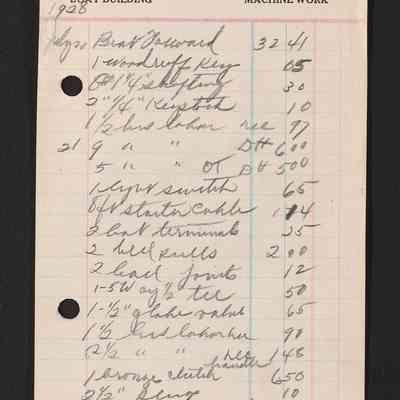 BOAT BUILDING MACHINE WORK
1928
Brot Forward 32 41
1 woodruff key 05
1 1/4" shafting 30
2" 1/4" Keystock 10
1 1/2 hrs labor 97
21 9 " " DH 6 00
5 " " OT DH 5 00
1 light switch 65
starter cable 1 14
2 bat terminals 25
2 bell pulls 2 00
2 ball joints 12
50
1-1/2" globe valve 65
1 1/2 hrs labor 90
2 1/2 " " 1 48
1 bronze clutch 6 50
2 1/2" plug 10